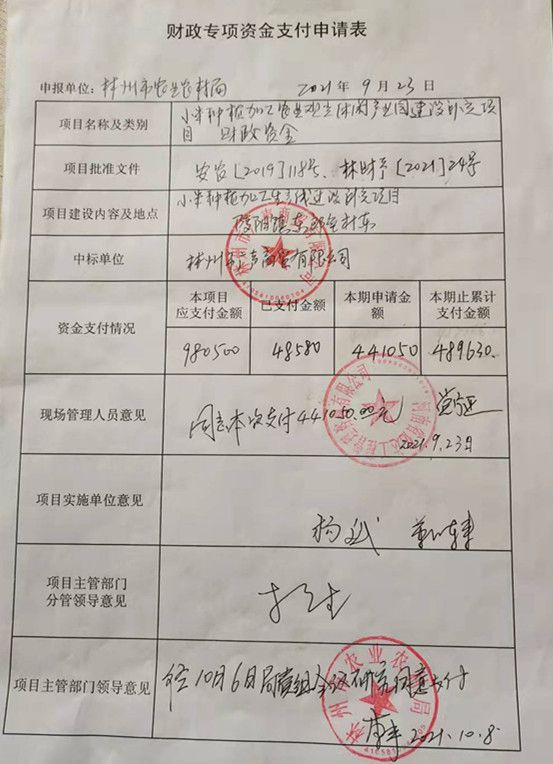 财政专项资金支付申请表
申报单位：林州市农业农村局 2021年9月23日
项目名称及类别 小米种植加工农业观光休闲产业园建设补充项
目 财政资金
项目批准文件 安农[2019]118号、林财予[2021]24号
项目建设内容及地点 小米种植加工生产线建设补充项目
陵阳镇东郎垒村东
中标单位 林州市 商贸有限公司
资金支付情况
本项目 已支付金额 本期申请金 本期止累计
应支付金额 额 支付金额
980500 48580 441050 489630.
现场管理人员意见 同意本次支付441050.00元
2021.9.23日
项目实施单位意见
项目主管部门
分管领导意见
项目主管部门领导意见 经10月6日局党组会议研究同意支付
2021.10.8